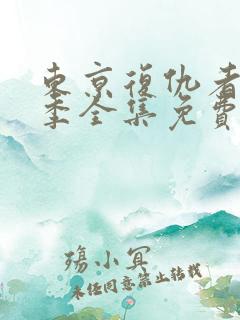 東京復仇者
季全集免費
殤小冥
未经同意禁止转载